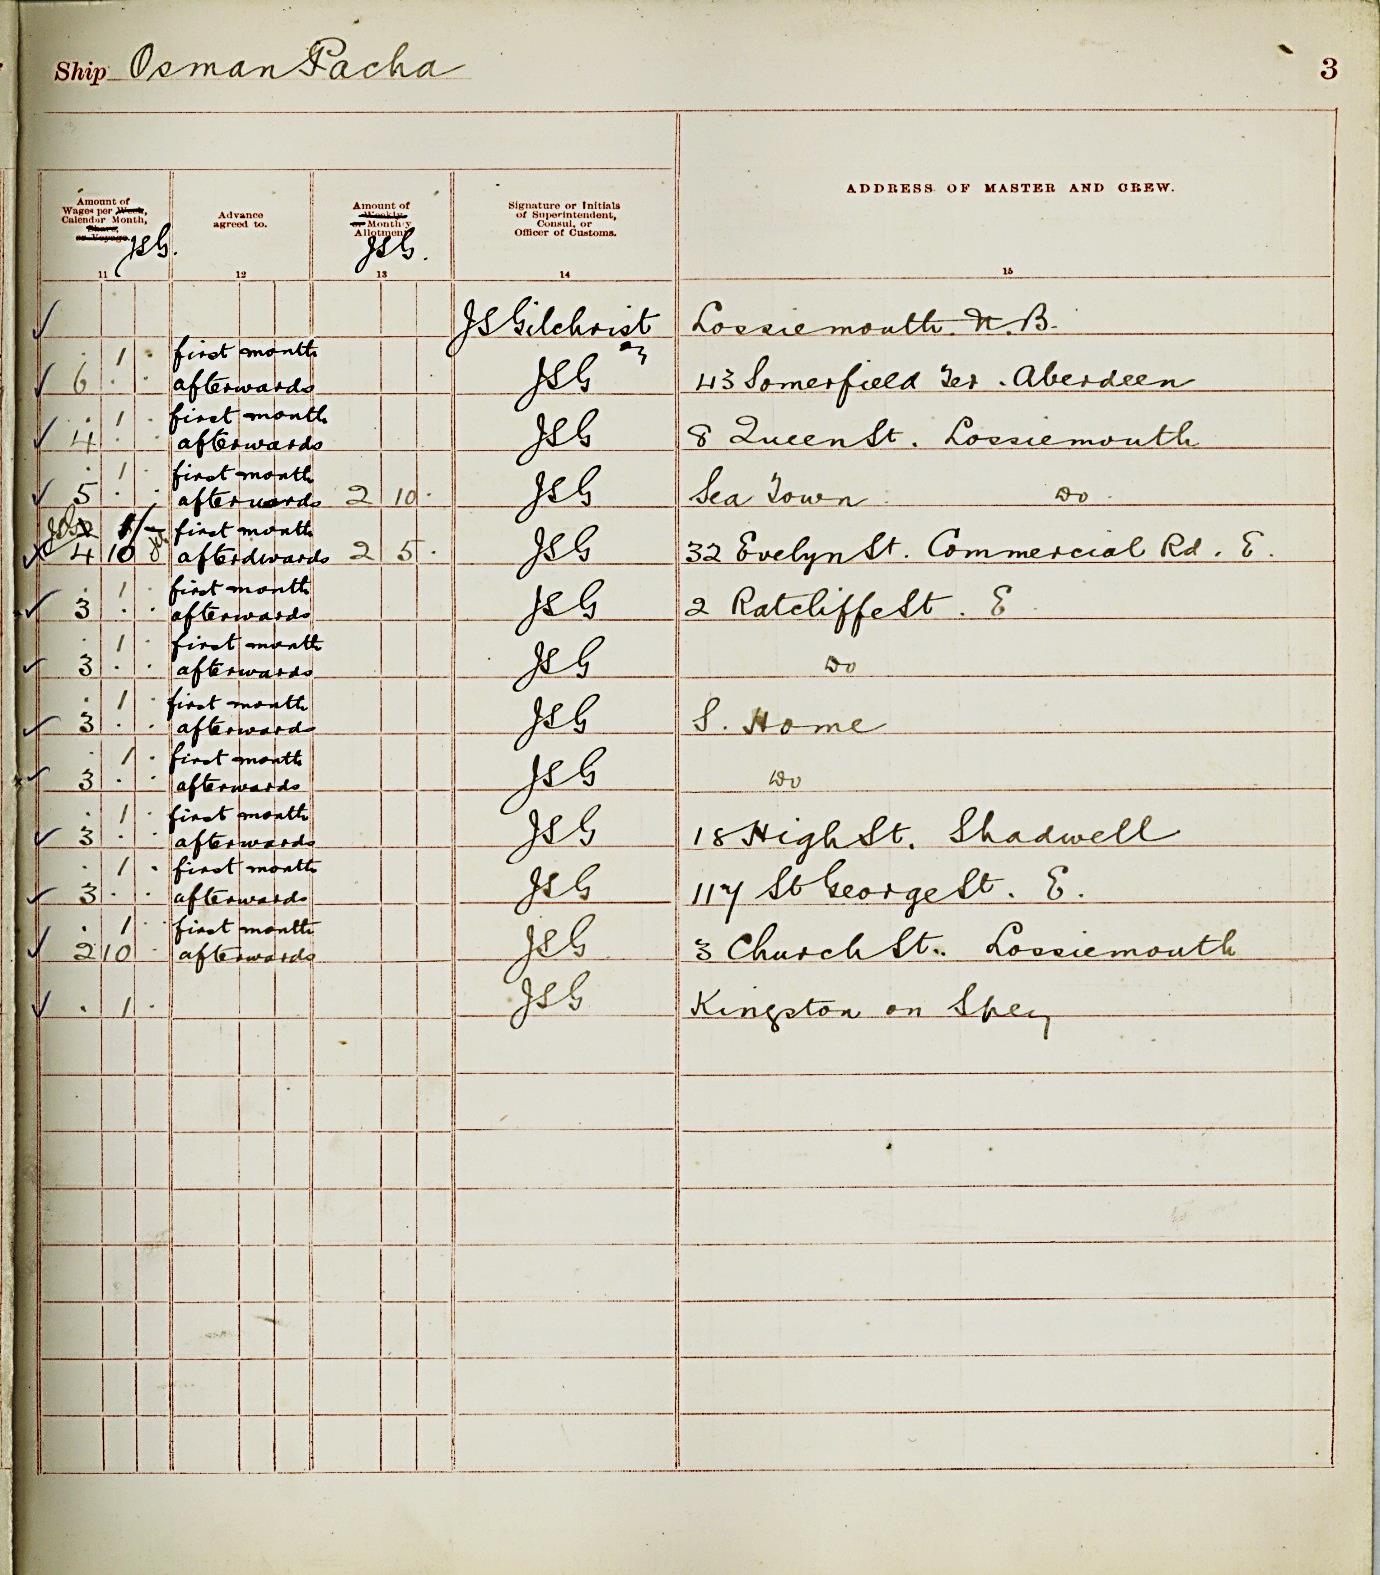 Ship Osman Pacha 3
Amount of Wages per Week, Calendar Month, Share, or Voyage. JSG.
Advance agreed to.
Amount of Weekly or Monthly Allotment JSG.
Signature or Initials of Superintendent, Consul, or Officer of Customs.
ADDRESS OF MASTER AND CREW.
11 12 13 14 15
JSGilchrist Lossiemouth. N. B.
. 1 . first month
6 . . afterwards JSG 43 Somerfield Ter . Aberdeen
. 1 . first month
4 . . afterwards JSG 8 Queen St. Lossiemouth
. 1 . first month
5 . . afterwards 2 10 . JSG Sea Town Do
1/- first month
4 10 afterdwards 2 5 . JSG 32 Evelyn St. Commercial Rd. E.
. 1 . first month
3 . . afterwards JSG 2 Ratcliffe St. E
. 1 . first month
3 . . afterwards JSG Do
. 1 . first month
3 . . afterwards JSG S. Home
. 1 . first month
3 . . afterwards JSG Do
. 1 . first month
3 . . afterwards JSG 18 High St. Shadwell
. 1 . first month
3 . . afterwards JSG 117 St George St. E.
. 1 . first month
2 10 . afterwards JSG 3 Church St. Lossiemouth
. 1 . JSG Kingston on Spey